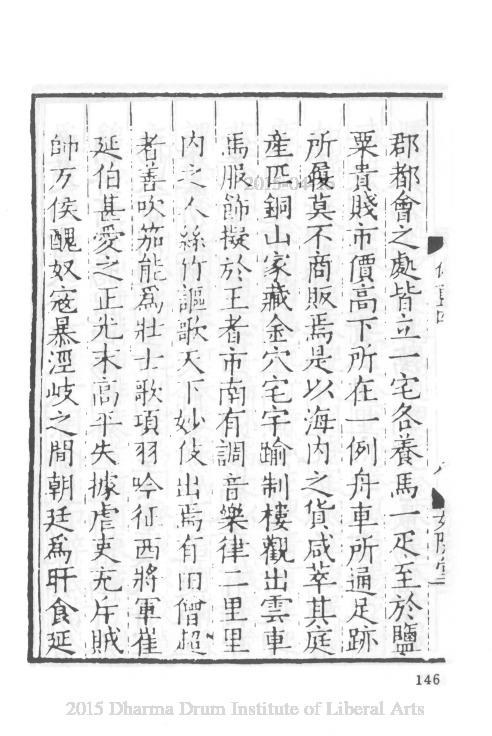 郡都會之處皆立一宅各養馬一疋至於鹽
粟貴賤市價高下所在一例舟車所通足跡
所履莫不商販焉是以海內之貨咸萃其庭
產匹銅山家藏金穴宅宇踰制樓觀出雲車
馬服飾擬於王者市南有調音樂律二里里
內之人絲竹謳歌天下妙伎出焉有田僧超
者善吹笳能為壯士歌項羽吟征西將軍崔
延伯甚愛之正光末高平失據虐吏充斥賊
帥万侯醜奴寇暴涇岐之間朝廷為旰食延
146
2015 Dharma Drum Institute of Liberal Arts